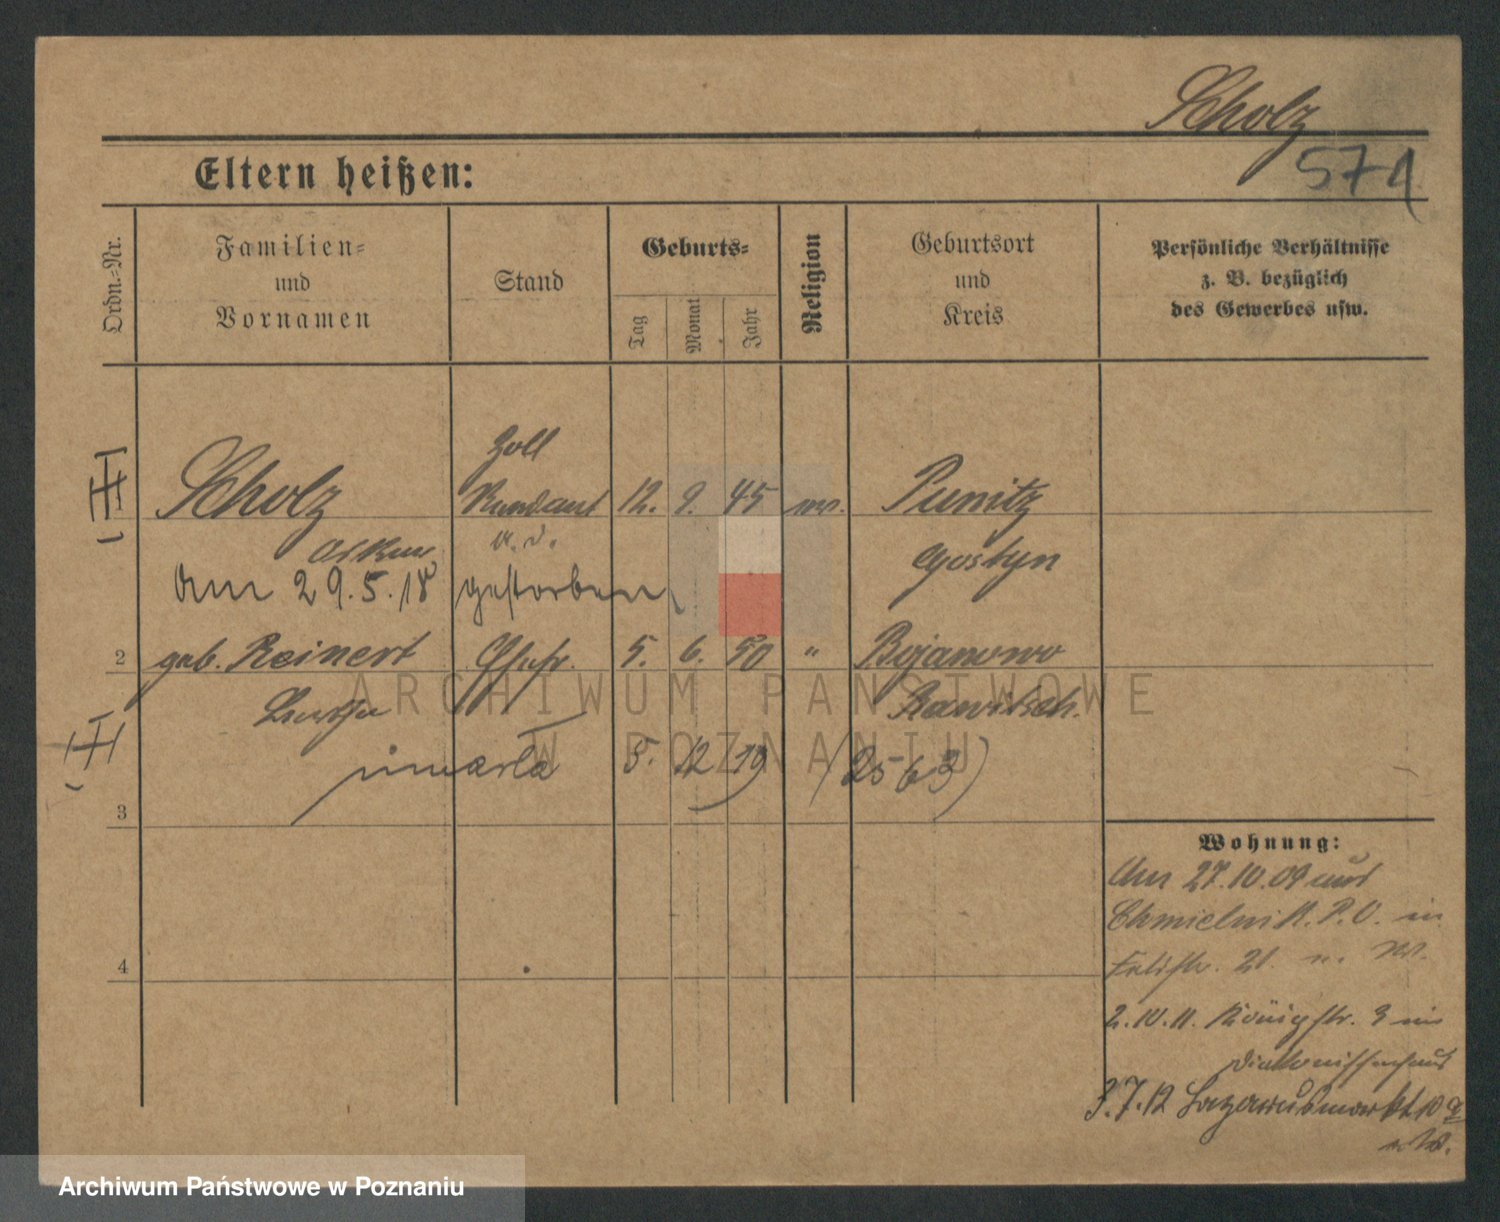 Scholz
571
Eltern heißen:
Ordn.-Nr.
Familien-
und
Vornamen
Stand
Geburts-
Tag
Monat
Jahr
Religion
Geburtsort
und
Kreis
Persönliche Verhältnisse
z. B. bezüglich
des Gewerbes usw.
Zoll
Scholz Rendant 12. 9. 45 ev. Punitz
Oskar a. D. Gostyn
Am 29.5.18 gestorben
2 geb. Reinert Ehefr. 5. 6. 50 " Bojanowo
Rawitsch.
umarła 5. 12 19 (2563)
3
4
Wohnung:
Am 27.10.09 aus
Chmielnik. P.O. in
21. n. W.
2.10.11. Königstr. 3 im
Diakonissenhaus
3.7.12 Lazarusmarkt 10
ARCHIWUM PAŃSTWOWE
W POZNANIU
Archiwum Państwowe w Poznaniu